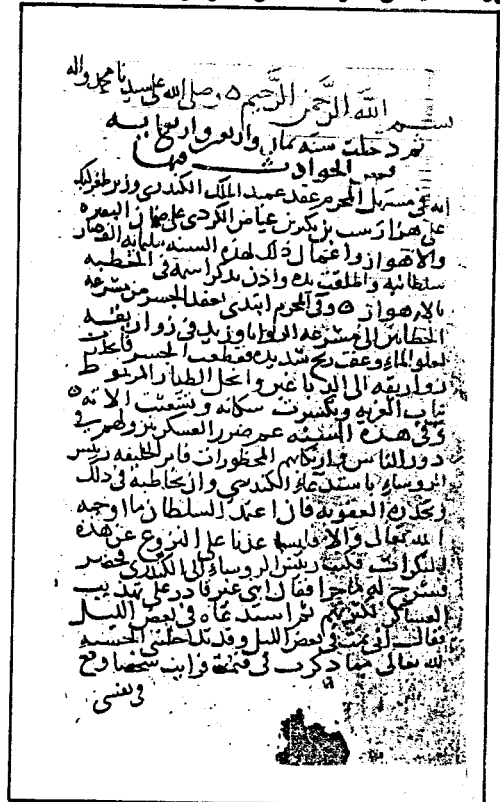 بسم الله الرحمن الرحيم وصلى الله على سيدنا محمد واله
ثم دخلت سنه ثمان واربعين واربعمايه
فمن الحوادث فيها
انه في مستهل المحرم عقد عميد الملك الكندري وزير طغرلبك
على هزارسب بن بنكير بن عياض الكردي على ضمان البصره
والاهواز واعمال ذلك لهذه السنه بثلثمايه الف دينار
سلطانيه واطلقت يده واذن بذكر اسمه في الخطبه
بالاهواز وفي المحرم ابتدى بعقد الجسر من مشرعه
الحطابين الى مشرعه الروايا وزيد في زواريقه
لعلو الماء وعصفت ريح شديده فقطعت الجسر فانحدرت
زواريقه الى الدباغين وانحل الطيار المربوط
بباب الغربه وتكسرت سكانه وتشعثت الاته
وفي هذه السنه عم ضرر العسكر بنزولهم في
دور الناس وارتكابهم المحظورات فامر الخليفه رئيس
الروساء باستدعاء الكندري وان يخاطبه في ذلك
ويحذره العقوبه فان اعتمد السلطان ما اوجبه
الله تعالى والا فليساعدنا على النزوح عن هذه
المنكرات فكتب رئيس الروساء الى الكندري فحضر
فشرح له ما جرا فقال اني غير قادر على تهذيب
العساكر لكثرتهم ثم استدعاه في بعض الليل
فقال اني نمت في بعض الليل وقد تداخلني الخشيه
لله تعالى مما ذكرت في فرايت شخصا وقع
في نفسي